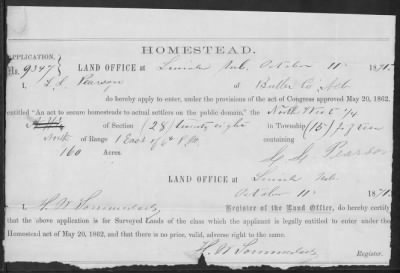 HOMESTEAD.
APPLICATION,
No. 9347 LAND OFFICE at Lincoln Neb. October 11th 1871.
I, Pearson of Butler Co Neb
do hereby apply to enter, under the provisions of the act of Congress approved May 20, 1862,
entitled “An act to secure homesteads to actual settlers on the public domain,” the North West 1/4
of Section (28) twenty eight in Township (15) fifteen
North of Range 1 East of 6th P.M. containing
160 Acres.
Pearson
LAND OFFICE at Lincoln Neb
October 11th 1871.
I, H. W. Register of the Land Office, do hereby certify
that the above application is for Surveyed Lands of the class which the applicant is legally entitled to enter under the
Homestead act of May 20, 1862, and that there is no prior, valid, adverse right to the same.
H. W.
Register.